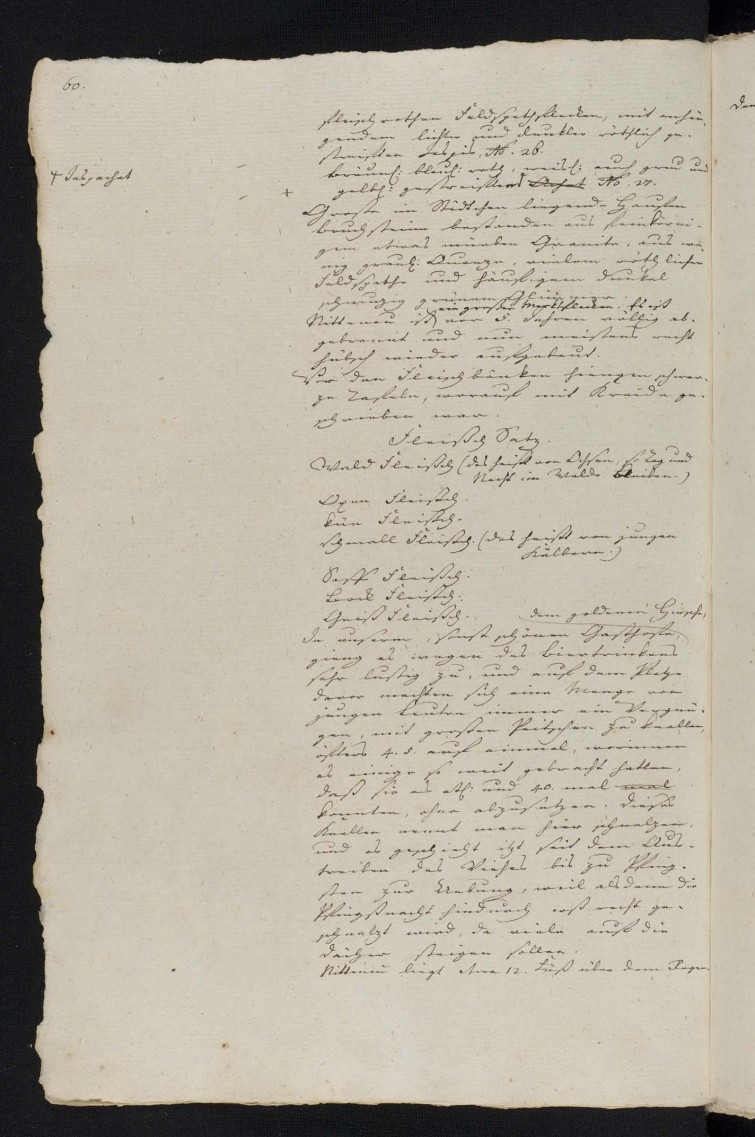 60.
fleischrothen Feldspathflecken, mit anhän-
gendem lichter und dunkler röthlich ge-
streiften Jaspis, No. 26.
bräunl: blaul: roth, weisl: auch grau und
+ Jaspachat
+ gelbl: gestreiften Achat No. 27.
Grosse im Städtchen liegende Haufen
Bruchsteine bestanden aus kleinkörni-
gem etwas mürben Granite, aus we-
nig graul: Quarze, vielem röthlichen
Feldspathe und häufigem dunkel
schmuzig grünem Glimmer.
ein groser Marktflecken. Es ist
Nittenau ist vor 5. Jahren völlig ab-
gebrannt und nun meistens recht
hübsch wieder aufgebaut.
Vor den Fleischbänken hiengen schwar-
ze Tafeln, worauf mit Kreide ge-
schrieben war.
Fleisch Satz.
Wald Fleisch (das heist von Ochsen, so Tag und
Nacht im Walde bleiben.)
Oxen Fleisch.
Küe Fleisch.
schmall Fleisch. (das heist von jungen
Kälbern.)
Fleisch.
Bock Fleisch.
Geiß Fleisch.
dem goldenen Hirsch,
In unserm, sonst schönen Gasthofe,
gieng es wegen des Biertrinkens
sehr lustig zu, und auf dem Platze
davor machten sich eine Menge von
jungen Leuten immer ein Vergnü-
gen, mit grossen Peitschen zu knallen,
öfters 4. 5. auf einmal, worinnen
es einige so weit gebracht hatten,
daß sie es etl: und 40. mal mal
konnten, ohne abzusetzen. Dieses
Knallen nennt man hier schnalzen,
und es geschieht izt seit dem Aus-
treiben des Viehes bis zu Pfing-
sten zur Uebung, weil alsdann die
Pfingstnacht hindurch erst recht ge-
schnalzt wird, da viele auf die
Dächer steigen sollen.
Nittenau liegt etwa 12. Fuß über dem Regen